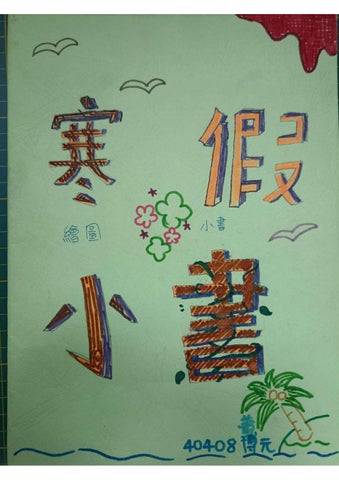 寒假
繪圖 小書
小書
40408 元